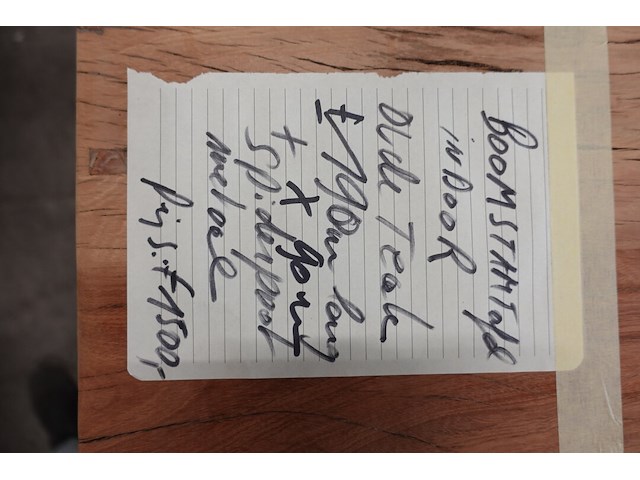 BOOMSTAMTafel
inDOOR
Oude Teak
± 190cm lang
+ x 90cm
+ spiderpoot
metaal
Prijs: € 1500,-